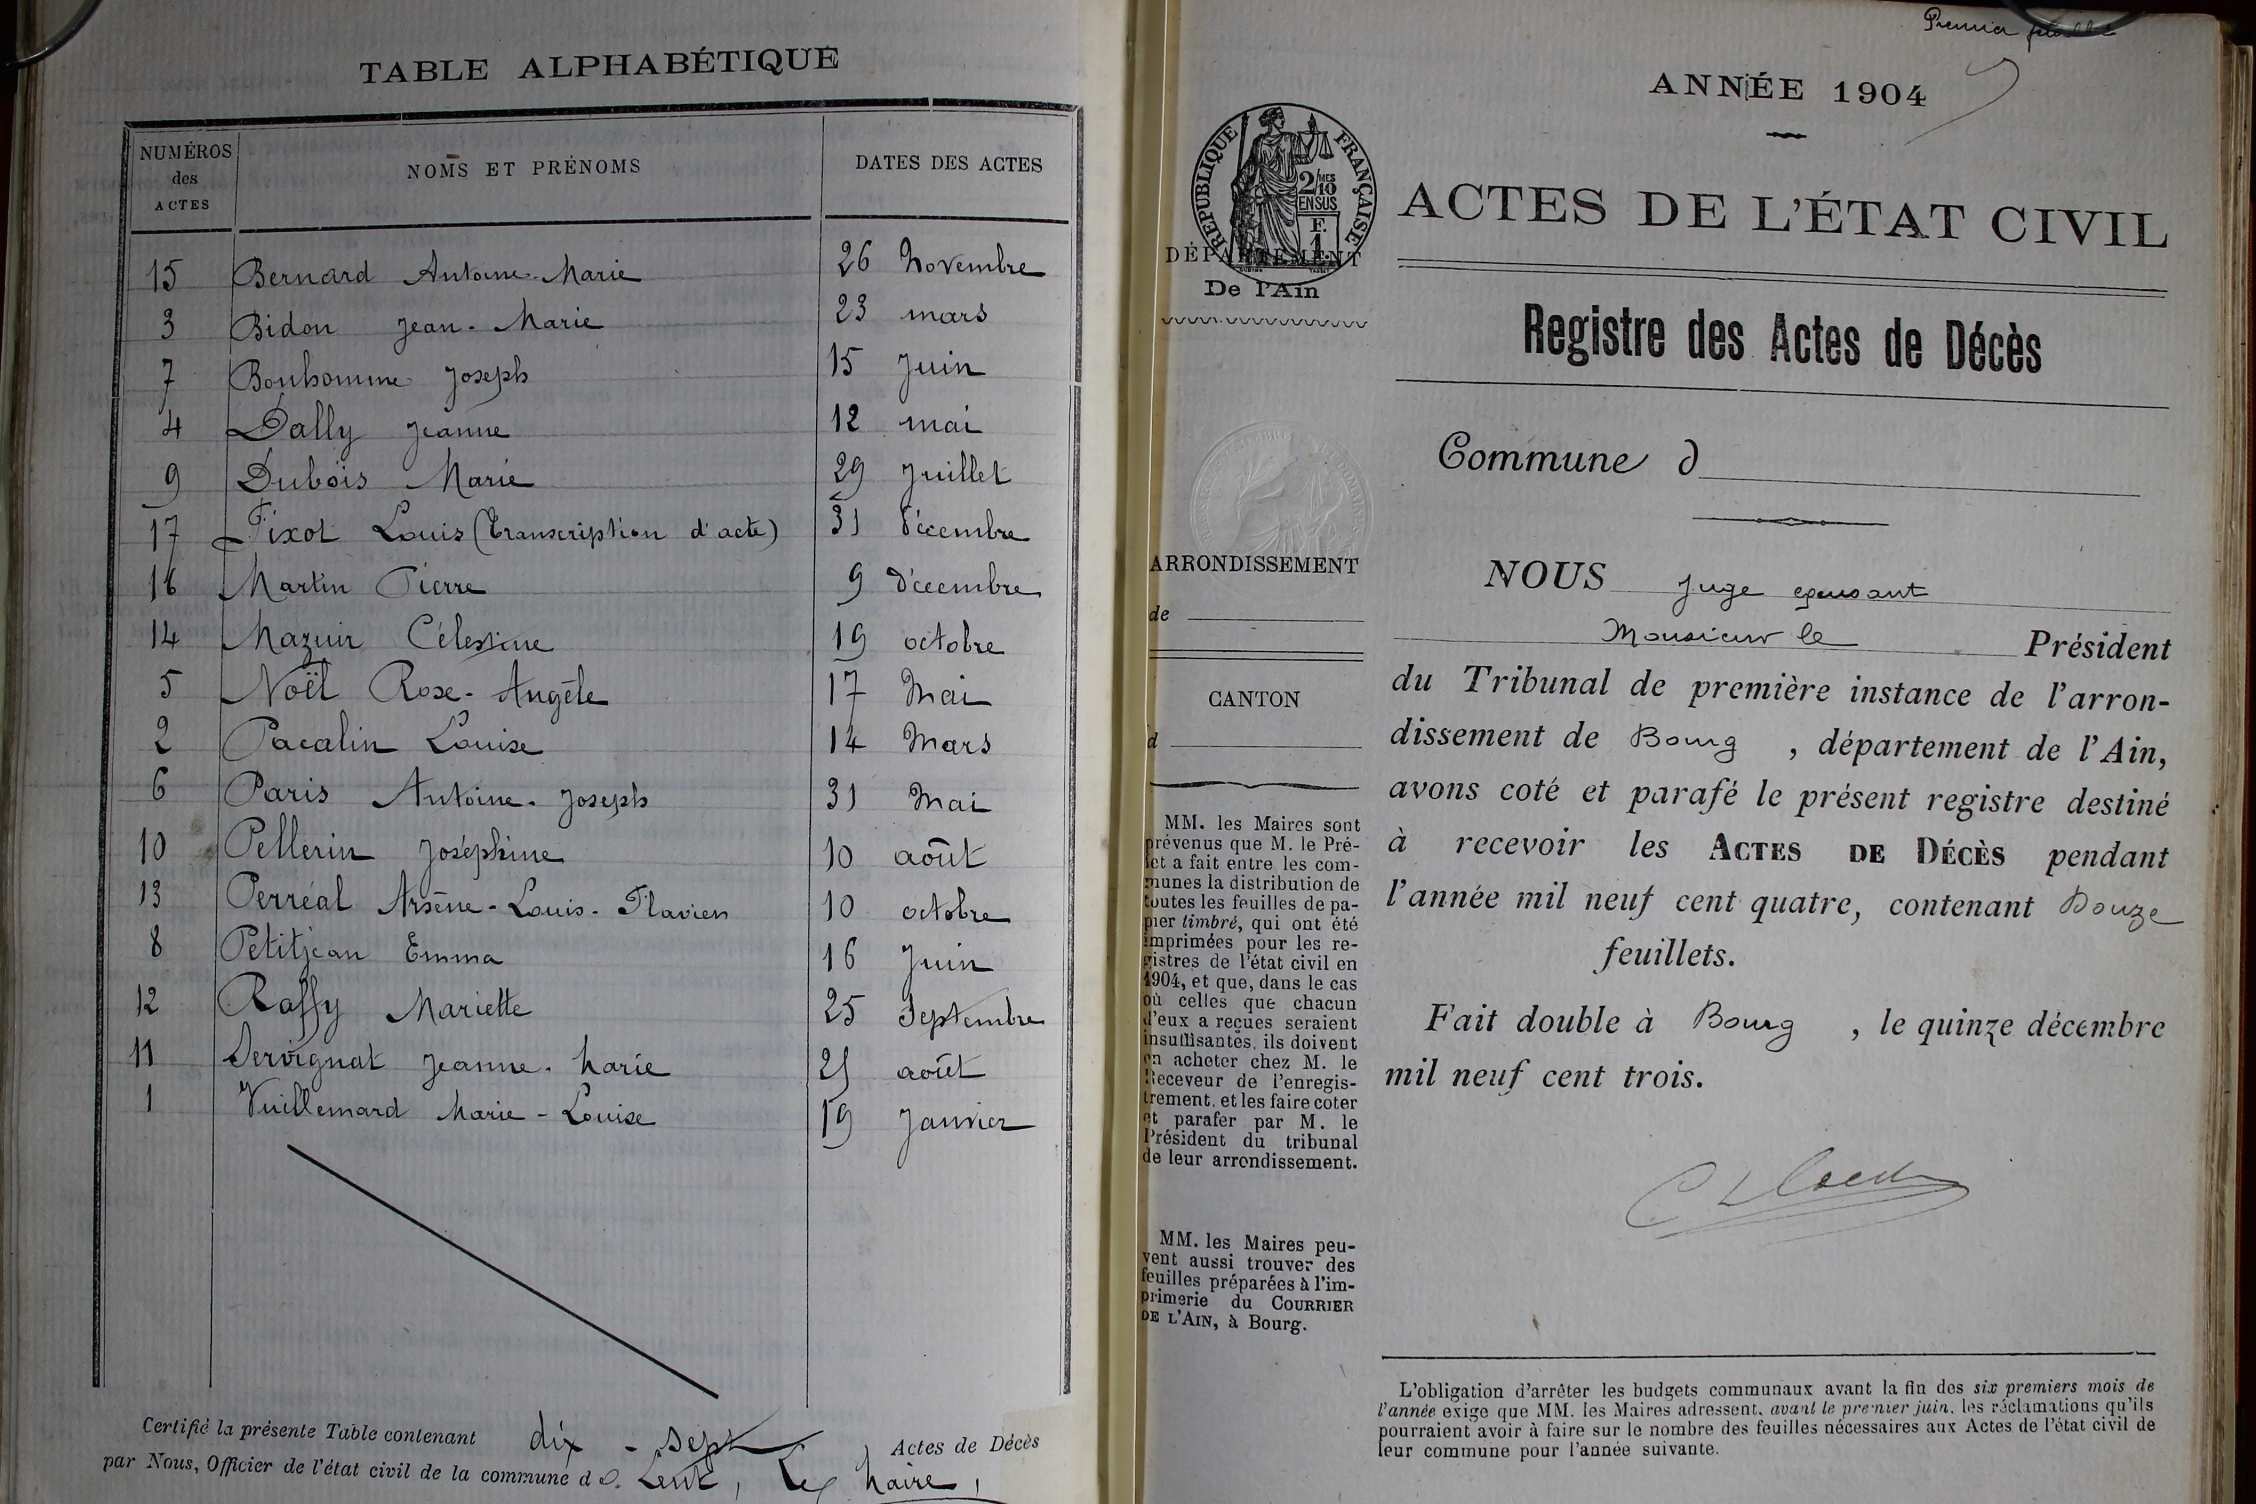 TABLE ALPHABÉTIQUE
NUMÉROS des ACTES NOMS ET PRÉNOMS DATES DES ACTES
15 Bernard Antoine-Marie 26 Novembre
3 Bidon Jean-Marie 23 mars
7 Bonhomme Joseph 15 Juin
4 Dally Jeanne 12 mai
9 Dubois Marie 29 Juillet
17 Fixot Louis (Transcription d'acte) 31 Décembre
16 Martin Pierre 9 Décembre
14 Mazuir Célestine 19 octobre
5 Noël Rose-Angèle 17 Mai
2 Pacalin Louise 14 Mars
6 Paris Antoine-Joseph 31 Mai
10 Pellerin Joséphine 10 août
13 Perréal Arsène-Louis-Flavien 10 octobre
8 Petitjean Emma 16 Juin
12 Raffy Mariette 25 Septembre
11 Servignat Jeanne-Marie 21 août
1 Vuillemard Marie-Louise 19 Janvier
Certifié la présente Table contenant dix-sept Actes de Décès
par Nous, Officier de l'état civil de la commune de Lent, Le Maire,
Premier
ANNÉE 1904
RÉPUBLIQUE FRANÇAISE
2/10MES
EN SUS
F.
1.
DÉPARTEMENT
De l'Ain
ACTES DE L'ÉTAT CIVIL
Registre des Actes de Décès
Commune d
ARRONDISSEMENT
de
CANTON
d
MM. les Maires sont
prévenus que M. le Pré-
fet a fait entre les com-
munes la distribution de
toutes les feuilles de pa-
pier timbré, qui ont été
imprimées pour les re-
gistres de l'état civil en
1904, et que, dans le cas
où celles que chacun
d'eux a reçues seraient
insuffisantes, ils doivent
en acheter chez M. le
Receveur de l'enregis-
trement, et les faire coter
et parafer par M. le
Président du tribunal
de leur arrondissement.
MM. les Maires peu-
vent aussi trouver des
feuilles préparées à l'im-
primerie du COURRIER
DE L'AIN, à Bourg.
NOUS Juge
Monsieur le Président
du Tribunal de première instance de l'arron-
dissement de Bourg, département de l'Ain,
avons coté et parafé le présent registre destiné
à recevoir les ACTES DE DÉCÈS pendant
l'année mil neuf cent quatre, contenant Douze
feuillets.
Fait double à Bourg, le quinze décembre
mil neuf cent trois.
L'obligation d'arrêter les budgets communaux avant la fin des six premiers mois de
l'année exige que MM. les Maires adressent, avant le premier juin, les réclamations qu'ils
pourraient avoir à faire sur le nombre des feuilles nécessaires aux Actes de l'état civil de
leur commune pour l'année suivante.